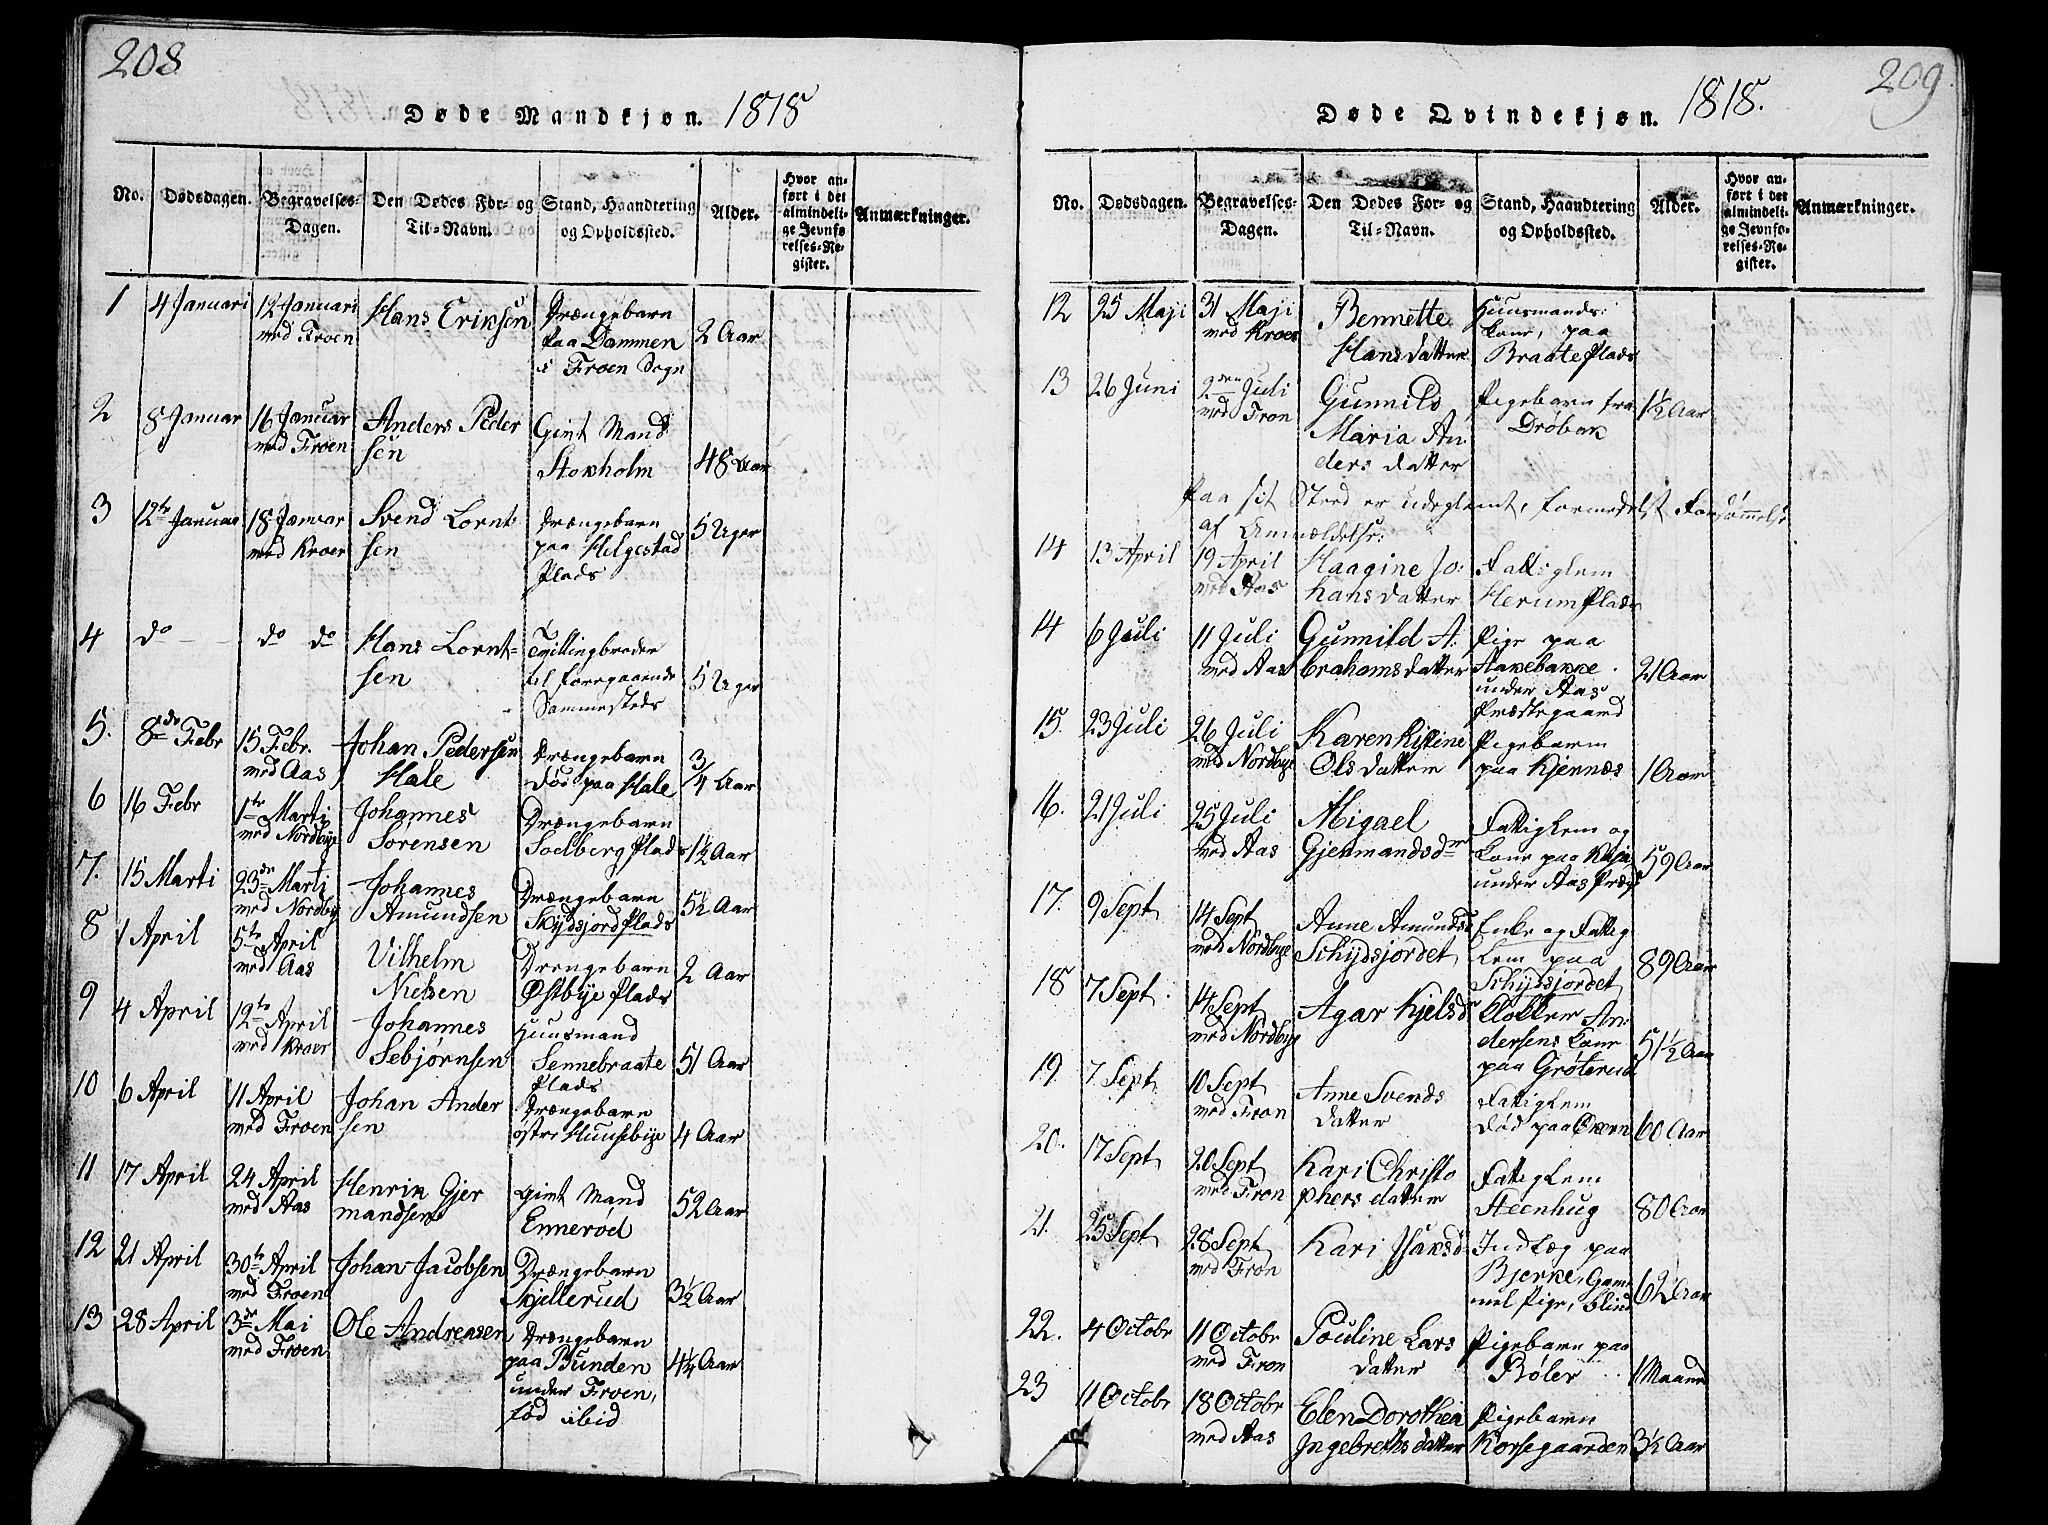 208
Døde Mandkjøn. 1818
No. Dødsdagen. Begravelses-Dagen. Den Dødes For- og Til-Navn. Stand, Haandtering og Opholdssted. Alder. Hvor anført i det almindelige Jevnførelses-Register. Anmærkninger.
1 4 Januari 12 Januari Hans Eriksen Drængebarn 2 Aar
med Froen paa Dammen
i Froen Sogn
2 8 Januar 16 Januar Anders Peder Gimt Mand 48 Aar
med Froen sen Stokholm
3 12te Januar 18 Januar Svend Lornt: Drængebarn 5 Uger
med Kroer sen paa Helgestad
Plads
4 do do do Hans Lornt- Tvillingbroder
sen til foregaaende 5 Uger
Sammesteds
5. 8de Febr 15 Febr. Johan Pedersen Drængebarn 3/4 Aar
med Aas Hale paa Hale
6 16 Febr 1te Marti Johannes Drængebarn
med Nordbye Sørensen Solberg Plads 1½ Aar
7. 15 Marti 23de Marti Johannes Drængebarn 5½ Aar
med Nordby Amundsen Skydsjord Plads
8 1 April 5te April Vilhelm Drængebarn 2 Aar
med Aas Nielsen Østbye Plads
9 4 April 12te April Johannes Huusmand
med Kroer Sebjørnsen Sennebraate 51 Aar
Plads
10 6 April 11 April Johan Ander Drængebarn
med Froen sen østre Huusebye 4 Aar
11 17 April 24 April Henrik Gjer Gimt Mand 52 Aar
med Aas mandsen Ennerød
12 21 April 30te April Johan Jacobsen Drængebarn
med Froen Skjellerud 3½ Aar
13 28 April 3de Mai Ole Andreasen Drængebarn
med Froen paa Bunden 4¼ Aar
under Froen,
fød ibid
209
Døde Qvindekjøn. 1818.
No. Dødsdagen. Begravelses-Dagen. Den Dødes For- og Til-Navn. Stand, Haandtering og Opholdssted. Alder. Hvor anført i det almindelige Jevnførelses-Register. Anmærkninger.
12 25 Maji 31 Maji Bennette Huusmands:
med Kroer Hansdatter kone, paa
Braate Plads
13 26 Juni 2den Juli Gunnild Pigebarn fra 1½ Aar
med Fron Maria An: Drøbak
ders datter
Paa sit Sted er udeglemt, formedelst Forsømmelse
af Anmældelse:
14 13 April 19 April Haagine Jo: Fattiglem
med Aas hansdatter Herum Plads
14 6 Juli 11 Juli Gunnild A: Pige paa
med Aas brahamsdatter Stakebakke 21 Aar
under Aas
Præstegaard
15. 23 Juli 26 Juli Karen Kistine Pigebarn
med Nordbye Olsdatter paa Kjernæs 1 Aar
16. 21 Juli 25 Juli Migael Fattiglem og
med Aas Gjermandsdr kone paa 59 Aar
under Aas Præg
17. 9 Sept 14 Sept Anne Amundsd Enke og Fattig
med Nordbye Schydsjordet Lem paa 89 Aar
Schydsjordet
18 7 Sept. 14 Sept Agar Kjelsdr An:
med Nordbye dersens kone 51½ Aar
paa Grøterud
19. 7. Sept 10 Sept Anne Svends Fattiglem
med Fron datter død paa Økern 60 Aar
20. 17 Sept 20 Sept Kari Christo Fattiglem
med Fron phersdatter Steenhug 80 Aar
21. 25 Sept 28 Sept Kari Isaksd Indlæg paa
med Fron Bjerke, Gam 62 Aar
mel Pige, blind
22. 4 Octobr 11 Octobr Pouline Lars Pigebarn paa
med Fron datter Røler 1 Maaned
23 11 Octobr 18 Octobr Elen Dorothea Pigebarn
med Aas Ingebrethsdatter Korsegaarden 3½ Aar